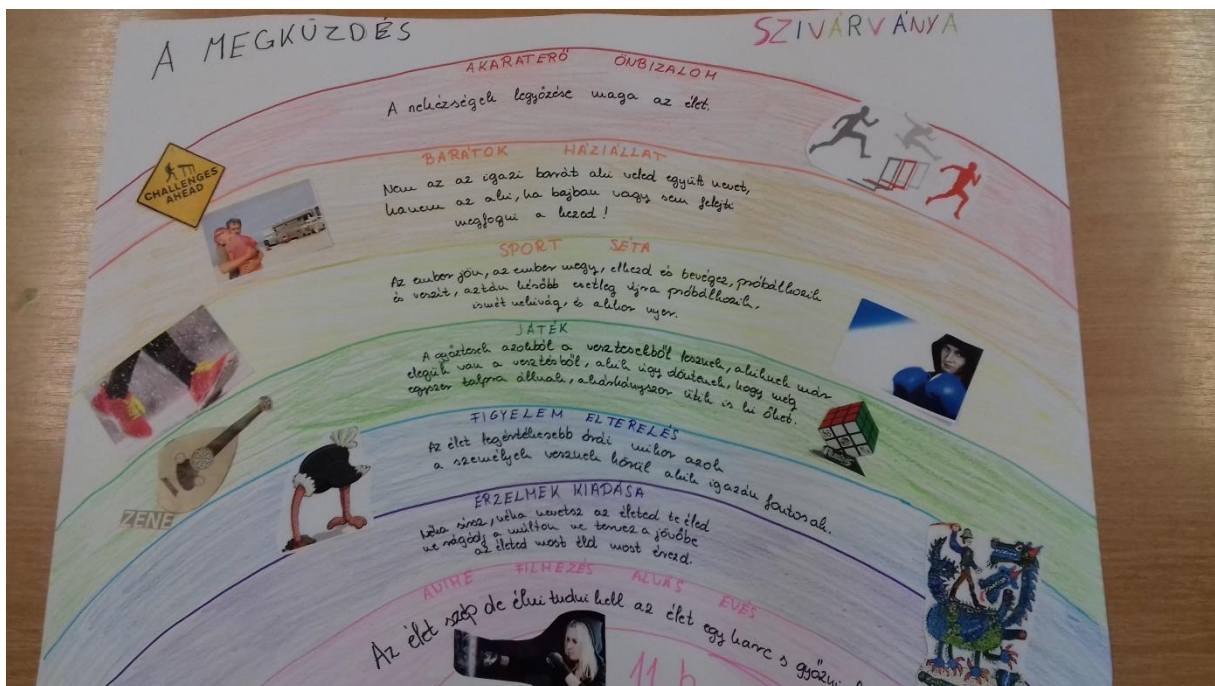 A MEGKÜZDÉS SZIVÁRVÁNYA
AKARATERŐ ÖNBIZALOM
A nehézségek legyőzése maga az élet.
CHALLENGES
AHEAD
BARÁTOK HÁZIÁLLAT
Nem az az igazi barát aki veled együtt nevet,
hanem az aki, ha bajban vagy sem felejti
megfogni a kezed!
SPORT SÉTA
Az ember jön, az ember megy, elkezd és bevégez, próbálkozik
és veszít, aztán később esetleg újra próbálkozik,
ismét nekivág, és akkor nyer.
JÁTÉK
A győztesek azokból a vesztesekből lesznek, akiknek már
elegük van a vesztésből, akik úgy döntenek, hogy még
egyszer talpra állnak, akárhányszor ütik is ki őket.
FIGYELEM ELTERELÉS
Az élet legértékesebb órái mikor azok
a személyek vesznek körül akik igazán fontosak.
ZENE
ÉRZELMEK KIADÁSA
Néha sírsz, néha nevetsz az életed te éled
ne rágódj a múlton ne tervez a jövőbe
az életed most éld most érezd.
ANIME FILMEZÉS ALVÁS EVÉS
Az élet szép de élni tudni kell az élet egy harc s győzni
11. b